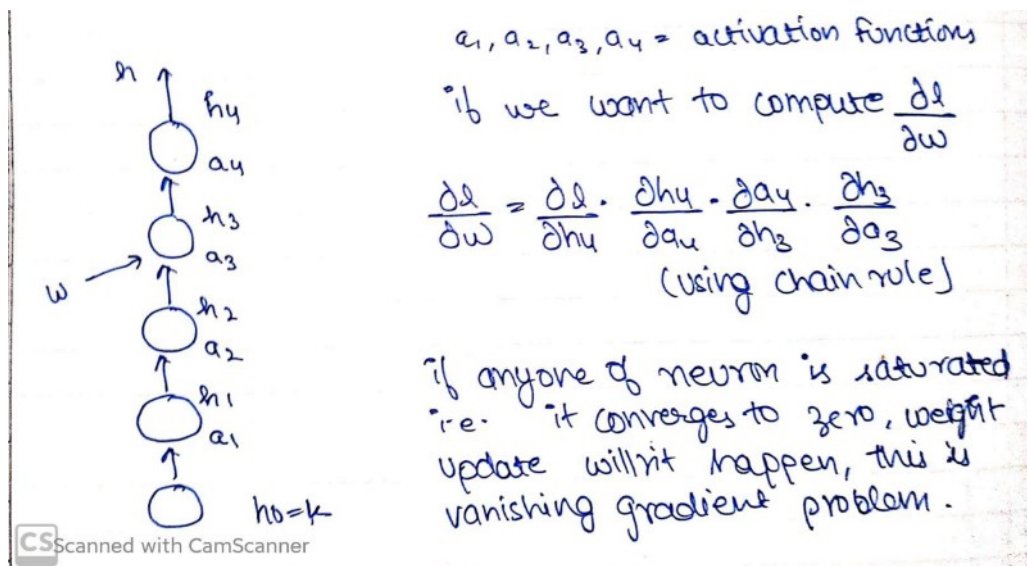 a1, a2, a3, a4 = activation functions
if we want to compute ∂l/∂w
∂l/∂w = ∂l/∂h4 . ∂h4/∂a4 . ∂a4/∂h3 . ∂h3/∂a3
(using chain rule)
if anyone of neuron is saturated
i.e. it converges to zero, weight
update willn't happen, this is
vanishing gradient problem.
h
h4
a4
h3
a3
w
h2
a2
h1
a1
h0=k
CS Scanned with CamScanner